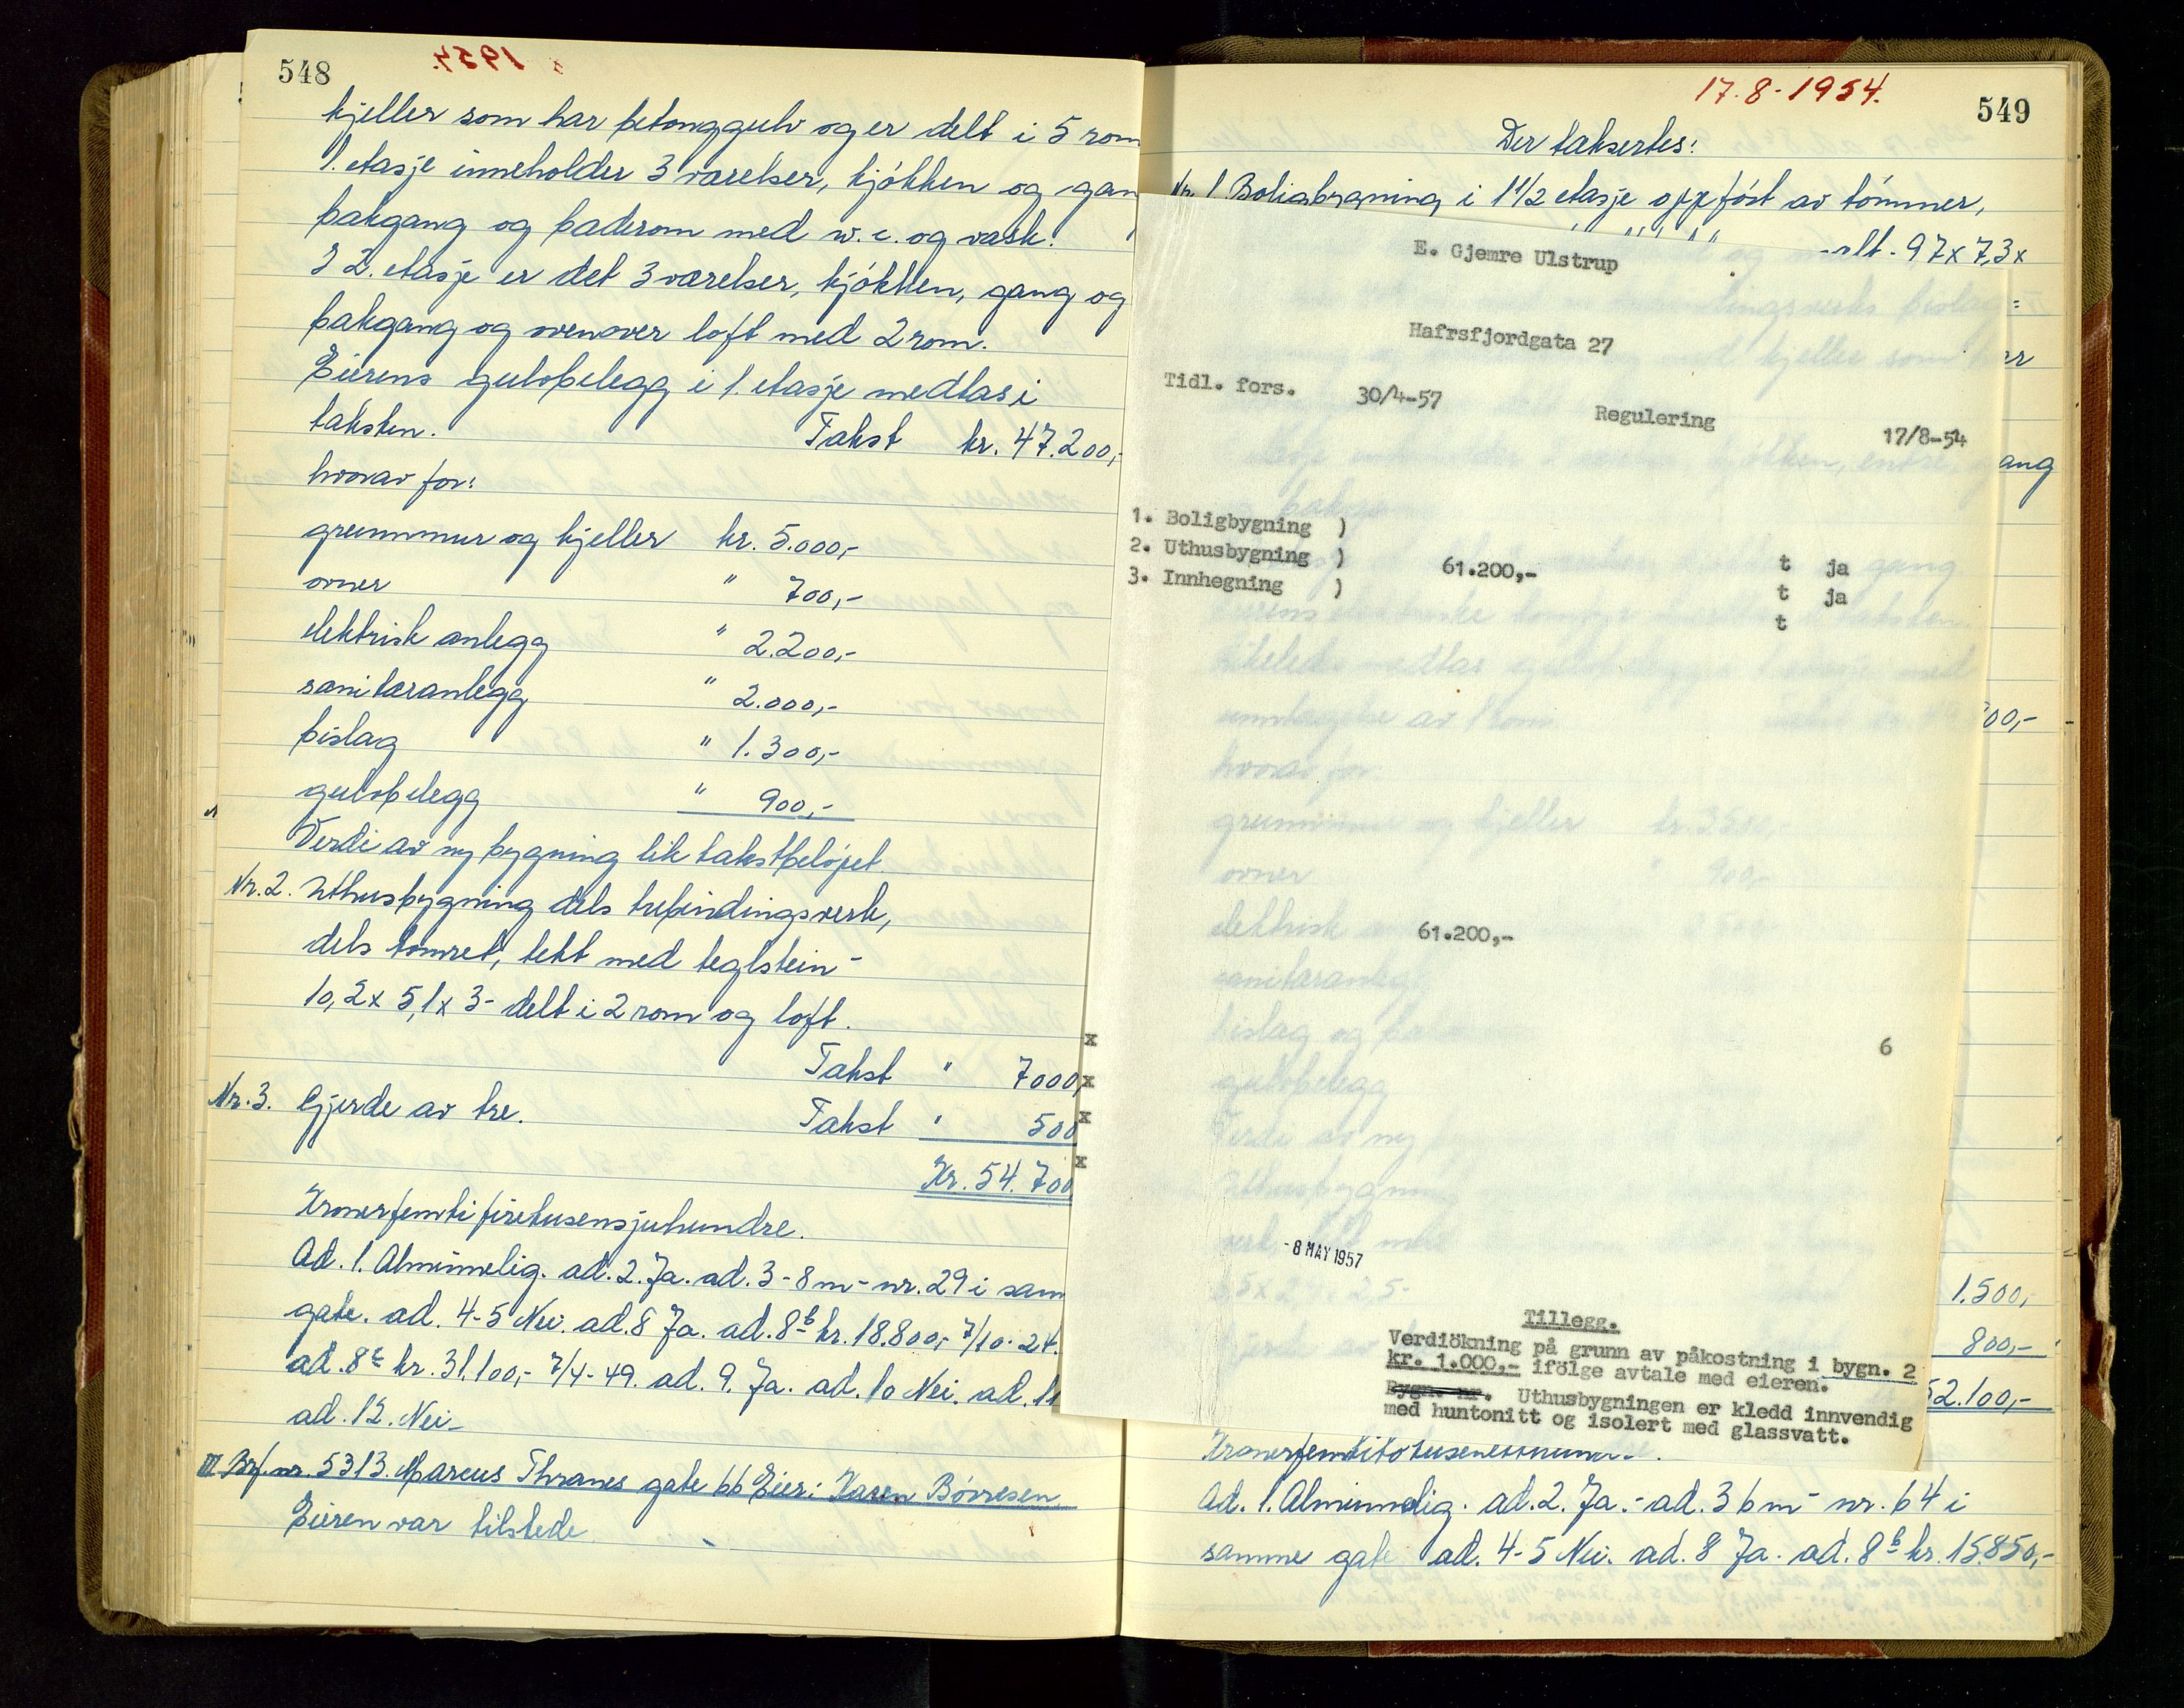 548
1954.
kjeller som har betonggulv og er delt i 5 rom
1. etasje inneholder 3 værelser, kjökken og gan
bakgang og baderom med w.c. og vask.
I 2. etasje er det 3 værelser, kjökken, gang og
bakgang og ovenover loft med 2 rom.
Eierens gulvbelegg i 1. etasje medtas i
taksten. Takst kr. 47.200,-
hvorav for:
grunnmur og kjeller kr. 5.000,-
ovner " 700,-
elektrisk anlegg " 2.200,-
sanitæranlegg " 2.000,-
bislag " 1.300,-
gulvbelegg " 900,-
Verdi av ny bygning lik takstbelöpet.
Nr. 2. Uthusbygning dels trebindingsverk,
dels tömret, tekt med teglstein -
10,2 x 5,1 x 3 - delt i 2 rom og loft.
Takst " 7000,
Nr. 3. Gjerde av tre. Takst " 500
Kr. 54.700
Kronerfemtifiretusensjuhundre.
Ad. 1. Alminnelig. ad. 2. Ja. ad. 3 - 8 m - nr. 29 i sam
gate. ad. 4-5 Nei. ad. 8 Ja. ad. 8b kr. 18.800,- 7/10-24.
ad. 8c kr. 31.100,- 7/4-49. ad. 9. Ja. ad. 10 Nei. ad. 11
ad. 12. Nei -
III Brf. nr. 5313. Marcus Thranes gate 66 Eier: Karen Börresen
Eieren var tilstede
17-8-1954.
549
Der taksertes:
Nr. 1 Boligbygning i 1 1/2 etasje oppfört av tömmer,
alt - 9 7 x 7,3 x
ar
ang
00,-
E. Gjemre Ulstrup
Hafrsfjordgata 27
Tidl. fors. 30/4-57 Regulering 17/8-54
1. Boligbygning )
2. Uthusbygning ) 61.200,- t ja
3. Innhegning ) t ja
t
61.200,-
x
6
x
x
x
-8 MAY 1957
Tillegg.
Verdiökning på grunn av påkostning i bygn. 2
kr. 1.000,- ifölge avtale med eieren.
Bygn. nr. Uthusbygningen er kledd innvendig
med huntonitt og isolert med glassvatt.
1.500,-
800,-
52.100,-
Ad. 1. Alminnelig. ad. 2. Ja. - ad. 3 6 m - nr. 64 i
samme gate ad. 4-5 Nei. ad. 8 Ja. ad. 8b kr. 15.850,-